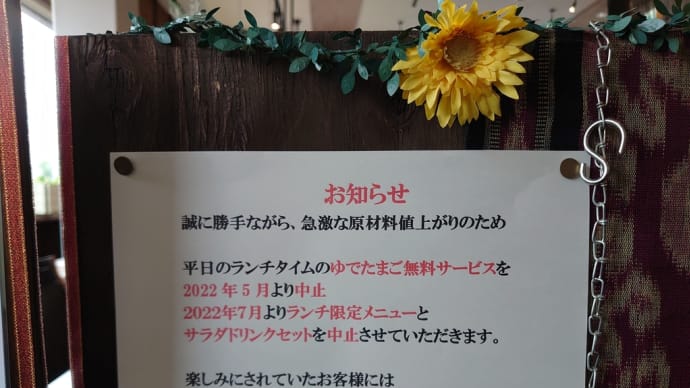 お知らせ
誠に勝手ながら、急激な原材料値上がりのため
平日のランチタイムのゆでたまご無料サービスを
2022年5月より中止
2022年7月よりランチ限定メニューと
サラダドリンクセットを中止させていただきます。
楽しみにされていたお客様には